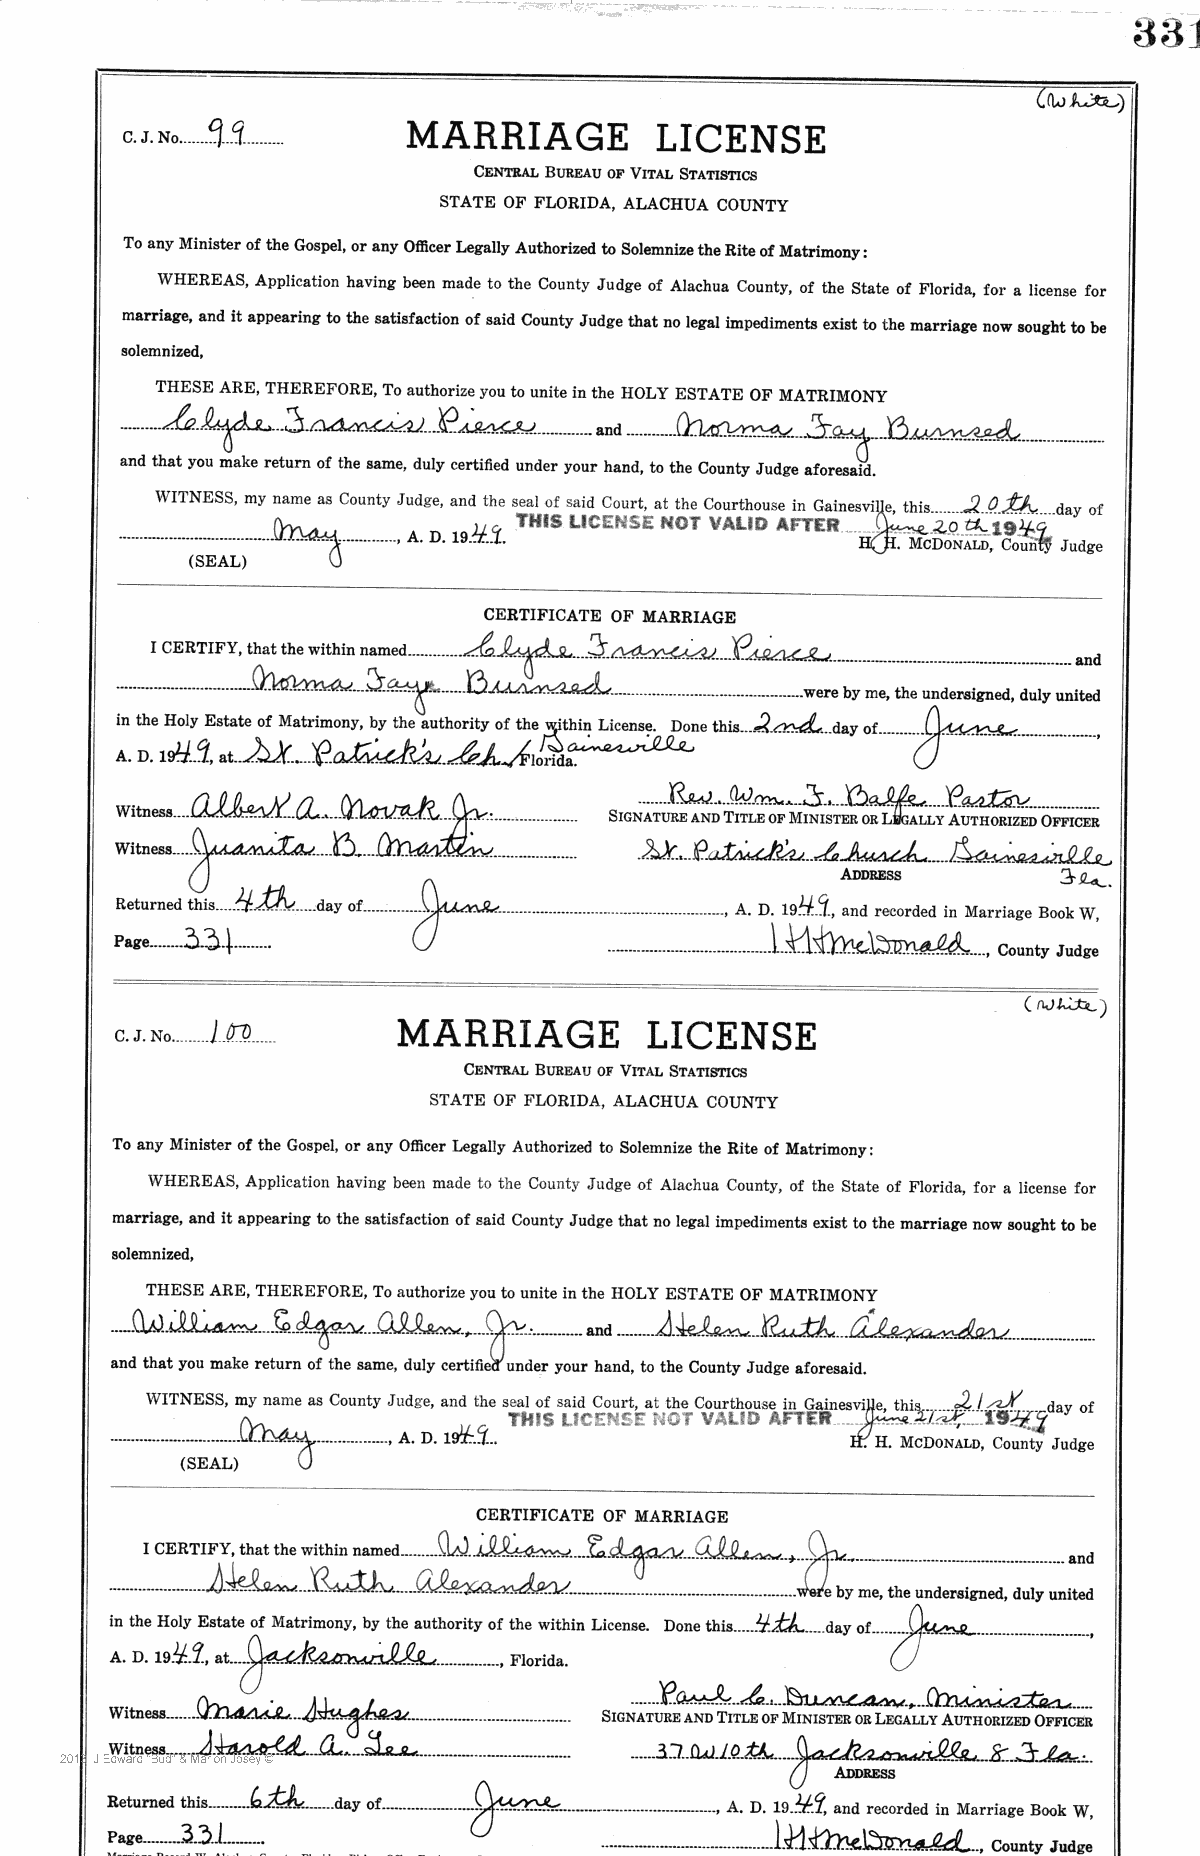 331
(White)
C. J. No. 99
MARRIAGE LICENSE
CENTRAL BUREAU OF VITAL STATISTICS
STATE OF FLORIDA, ALACHUA COUNTY
To any Minister of the Gospel, or any Officer Legally Authorized to Solemnize the Rite of Matrimony:
WHEREAS, Application having been made to the County Judge of Alachua County, of the State of Florida, for a license for
marriage, and it appearing to the satisfaction of said County Judge that no legal impediments exist to the marriage now sought to be
solemnized,
THESE ARE, THEREFORE, To authorize you to unite in the HOLY ESTATE OF MATRIMONY
Clyde Francis Pierce and Norma Fay Burnsed
and that you make return of the same, duly certified under your hand, to the County Judge aforesaid.
WITNESS, my name as County Judge, and the seal of said Court, at the Courthouse in Gainesville, this 20th day of
THIS LICENSE NOT VALID AFTER June 20th 1949
May, A. D. 1949.
H. H. MCDONALD, County Judge
(SEAL)
CERTIFICATE OF MARRIAGE
I CERTIFY, that the within named Clyde Francis Pierce and
Norma Fay Burnsed were by me, the undersigned, duly united
in the Holy Estate of Matrimony, by the authority of the within License. Done this 2nd day of June,
A. D. 1949, at St. Patrick's Ch, Gainesville Florida.
Rev. Wm. F. Balfe Pastor
Witness Albert A. Novak Jr.
SIGNATURE AND TITLE OF MINISTER OR LEGALLY AUTHORIZED OFFICER
Witness Juanita B. Martin
St. Patrick's Church Gainesville
Fla.
ADDRESS
Returned this 4th day of June, A. D. 1949, and recorded in Marriage Book W,
Page 331
HHMcDonald, County Judge
(White)
C. J. No. 100
MARRIAGE LICENSE
CENTRAL BUREAU OF VITAL STATISTICS
STATE OF FLORIDA, ALACHUA COUNTY
To any Minister of the Gospel, or any Officer Legally Authorized to Solemnize the Rite of Matrimony:
WHEREAS, Application having been made to the County Judge of Alachua County, of the State of Florida, for a license for
marriage, and it appearing to the satisfaction of said County Judge that no legal impediments exist to the marriage now sought to be
solemnized,
THESE ARE, THEREFORE, To authorize you to unite in the HOLY ESTATE OF MATRIMONY
William Edgar Allen, Jr. and Helen Ruth Alexander
and that you make return of the same, duly certified under your hand, to the County Judge aforesaid.
WITNESS, my name as County Judge, and the seal of said Court, at the Courthouse in Gainesville, this 21st day of
THIS LICENSE NOT VALID AFTER June 21st, 1949
May, A. D. 1949.
H. H. MCDONALD, County Judge
(SEAL)
CERTIFICATE OF MARRIAGE
I CERTIFY, that the within named William Edgar Allen, Jr. and
Helen Ruth Alexander were by me, the undersigned, duly united
in the Holy Estate of Matrimony, by the authority of the within License. Done this 4th day of June,
A. D. 1949, at Jacksonville, Florida.
Paul C. Duncan, Minister
Witness Marie Hughes
SIGNATURE AND TITLE OF MINISTER OR LEGALLY AUTHORIZED OFFICER
Witness Harold A. Lee
37 W 10th Jacksonville 8 Fla.
J Edward "Bud" & Marion Josey ©
ADDRESS
Returned this 6th day of June, A. D. 1949, and recorded in Marriage Book W,
Page 331
HHMcDonald, County Judge